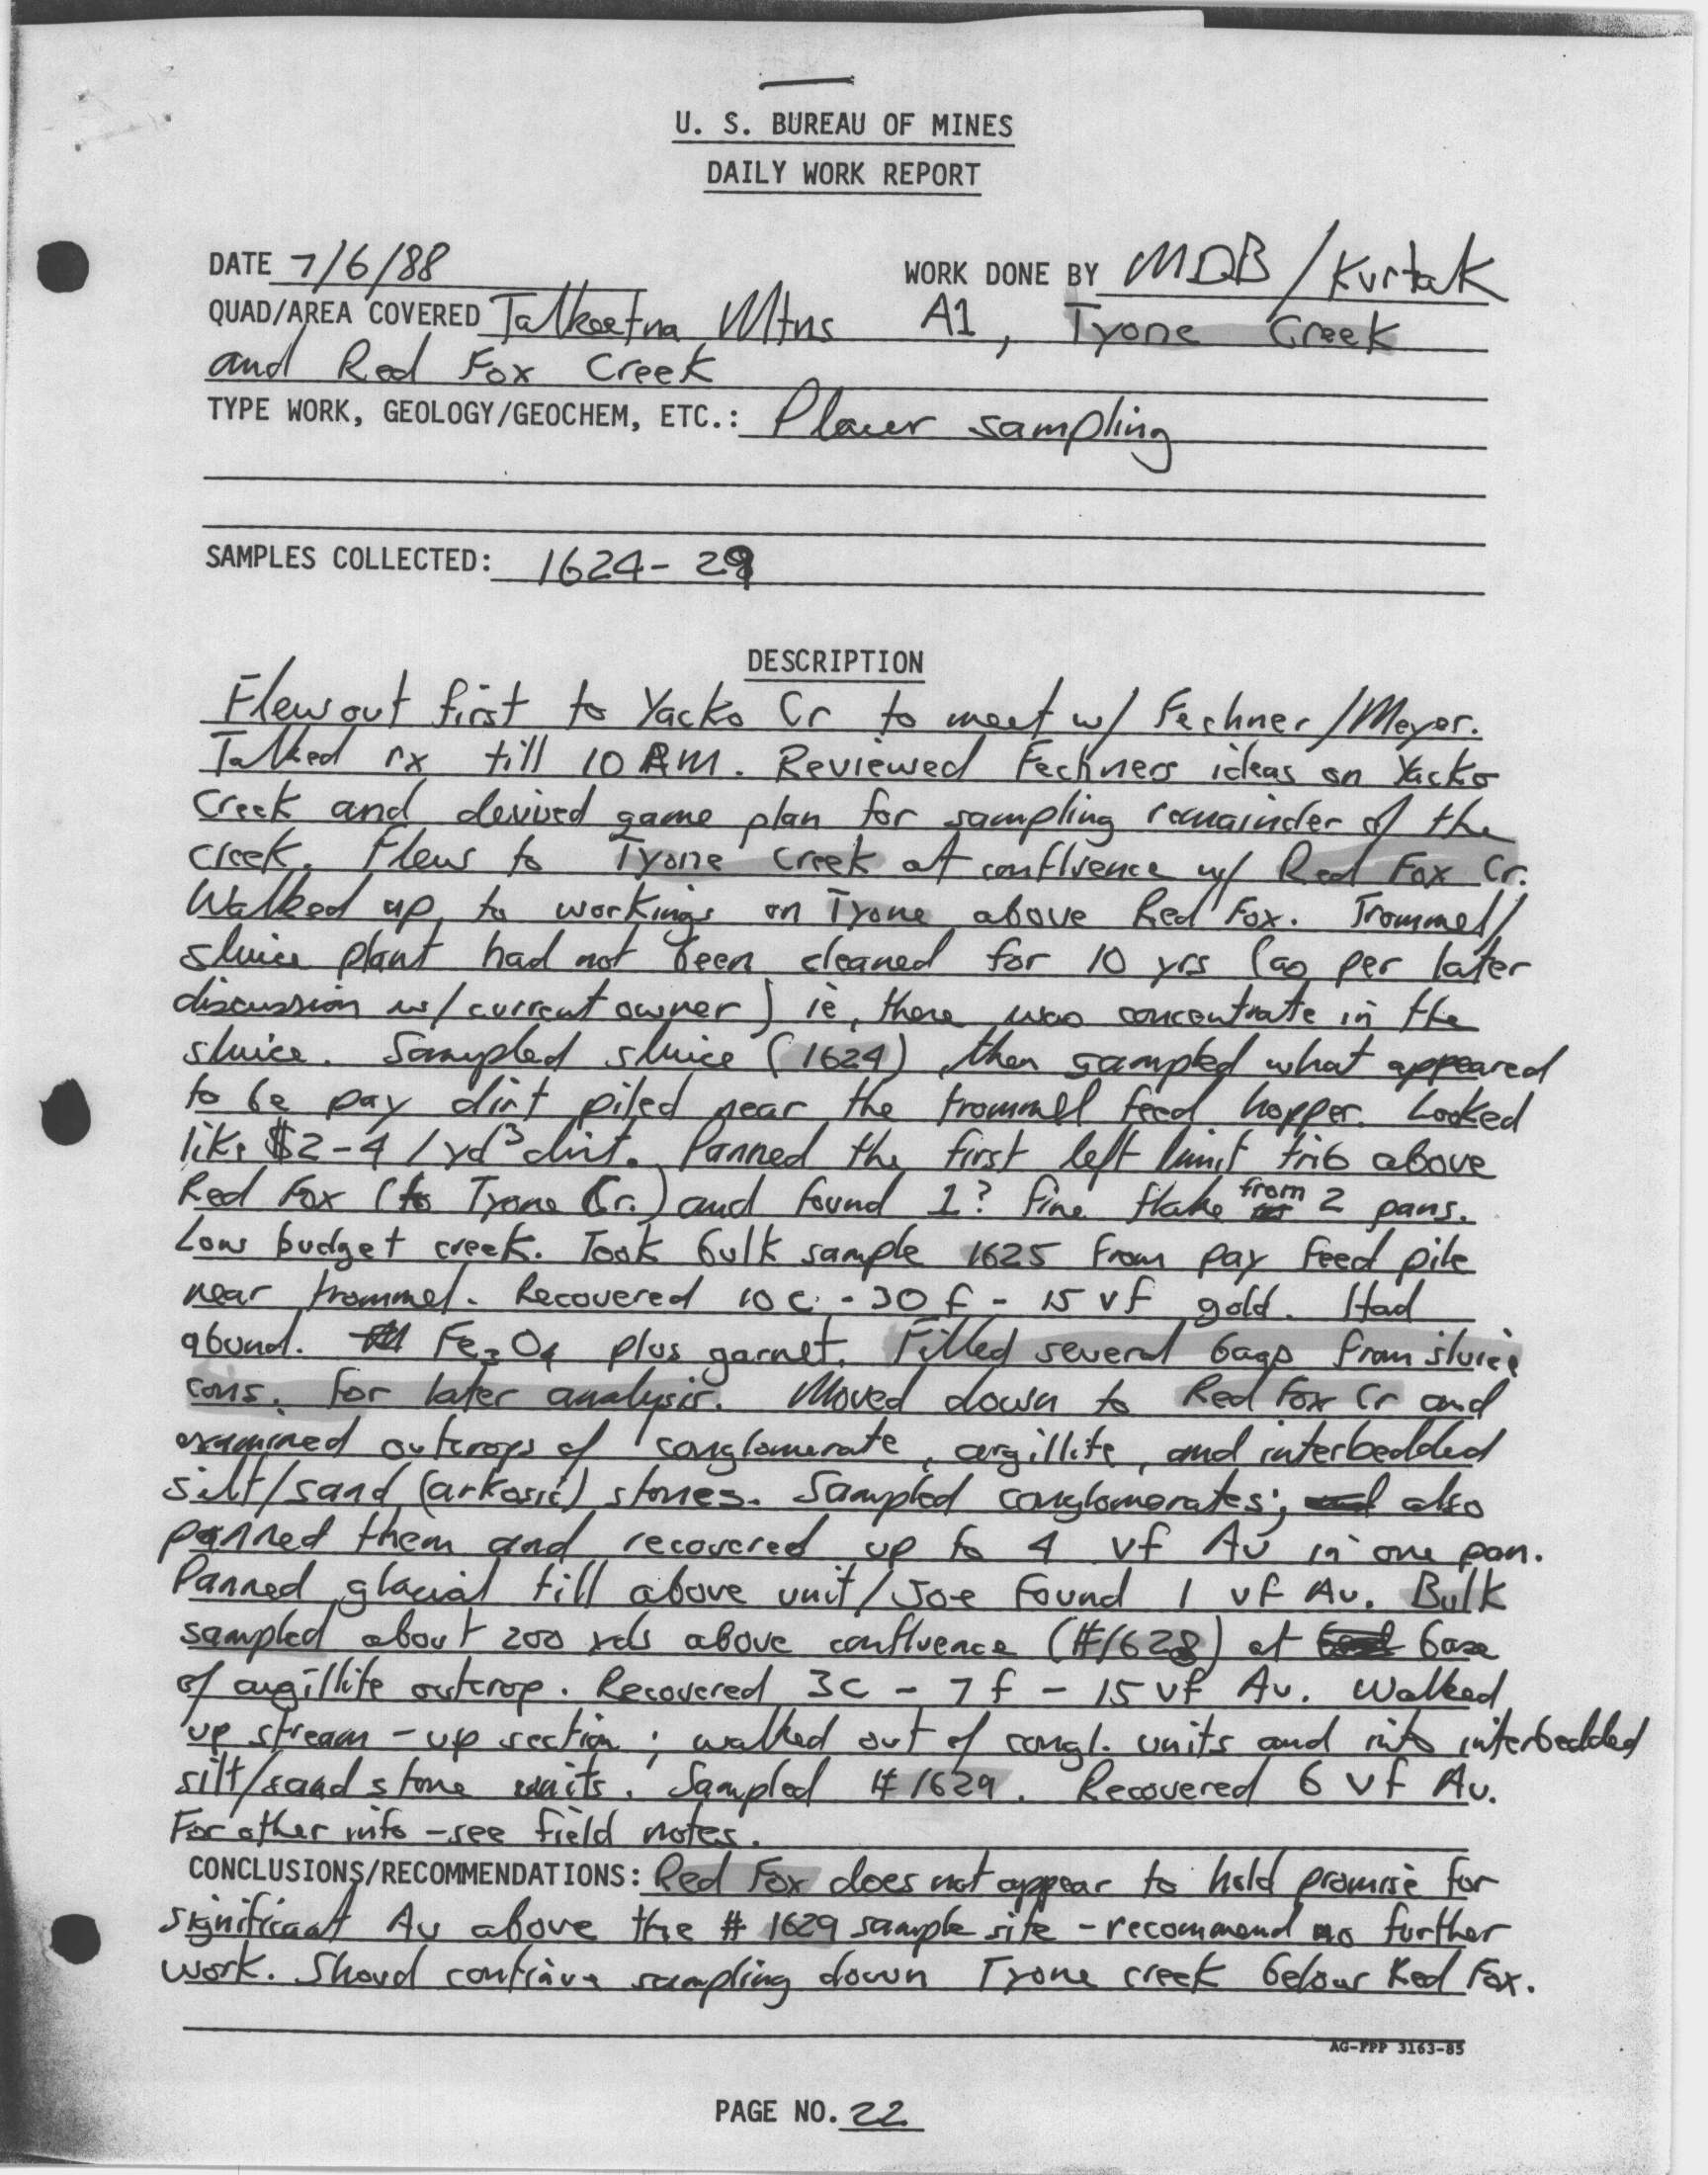 U. S. BUREAU OF MINES
DAILY WORK REPORT
DATE 7/6/88 WORK DONE BY MDB/Kurtak
QUAD/AREA COVERED Talkeetna Mtns A1, Tyone Creek
and Red Fox Creek
TYPE WORK, GEOLOGY/GEOCHEM, ETC.: Placer sampling
SAMPLES COLLECTED: 1624-29
DESCRIPTION
Flew out first to Yacko Cr to meet w/ Fechner/Meyer.
Talked rx till 10 AM. Reviewed Fechners ideas on Yacko
Creek and derived game plan for sampling remainder of the
creek. Flew to Tyone Creek at confluence w/ Red Fox Cr.
Walked up to workings on Tyone above Red Fox. Trommel/
sluice plant had not been cleaned for 10 yrs (as per later
discussion w/ current owner) ie, there was concentrate in the
sluice. Sampled sluice (1624), then sampled what appeared
to be pay dirt piled near the trommel feed hopper. Looked
like $2-4/yd³ dirt. Panned the first left limit trib above
Red Fox (to Tyone Cr.) and found 1? fine flake from 2 pans.
Low budget creek. Took bulk sample 1625 from pay feed pile
near trommel. Recovered 10 c - 30 f - 15 vf gold. Had
abund. Fe3O4 plus garnet. Filled several bags from sluice
cons. for later analysis. Moved down to Red Fox Cr and
examined outcrops of conglomerate, argillite, and interbedded
silt/sand (arkosic) stones. Sampled conglomerates; also
panned them and recovered up to 4 vf Au in one pan.
Panned glacial till above unit/Joe found 1 vf Au. Bulk
sampled about 200 yds above confluence (#1628) at base
of argillite outcrop. Recovered 3c - 7f - 15 vf Au. Walked
up stream - up section; walked out of congl. units and into interbedded
silt/sand stone units. Sampled #1629. Recovered 6 vf Au.
For other info - see field notes.
CONCLUSIONS/RECOMMENDATIONS: Red Fox does not appear to hold promise for
significant Au above the # 1629 sample site - recommend no further
work. Shoud continue sampling down Tyone creek below Red Fox.
AG-FPP 3163-85
PAGE NO. 22